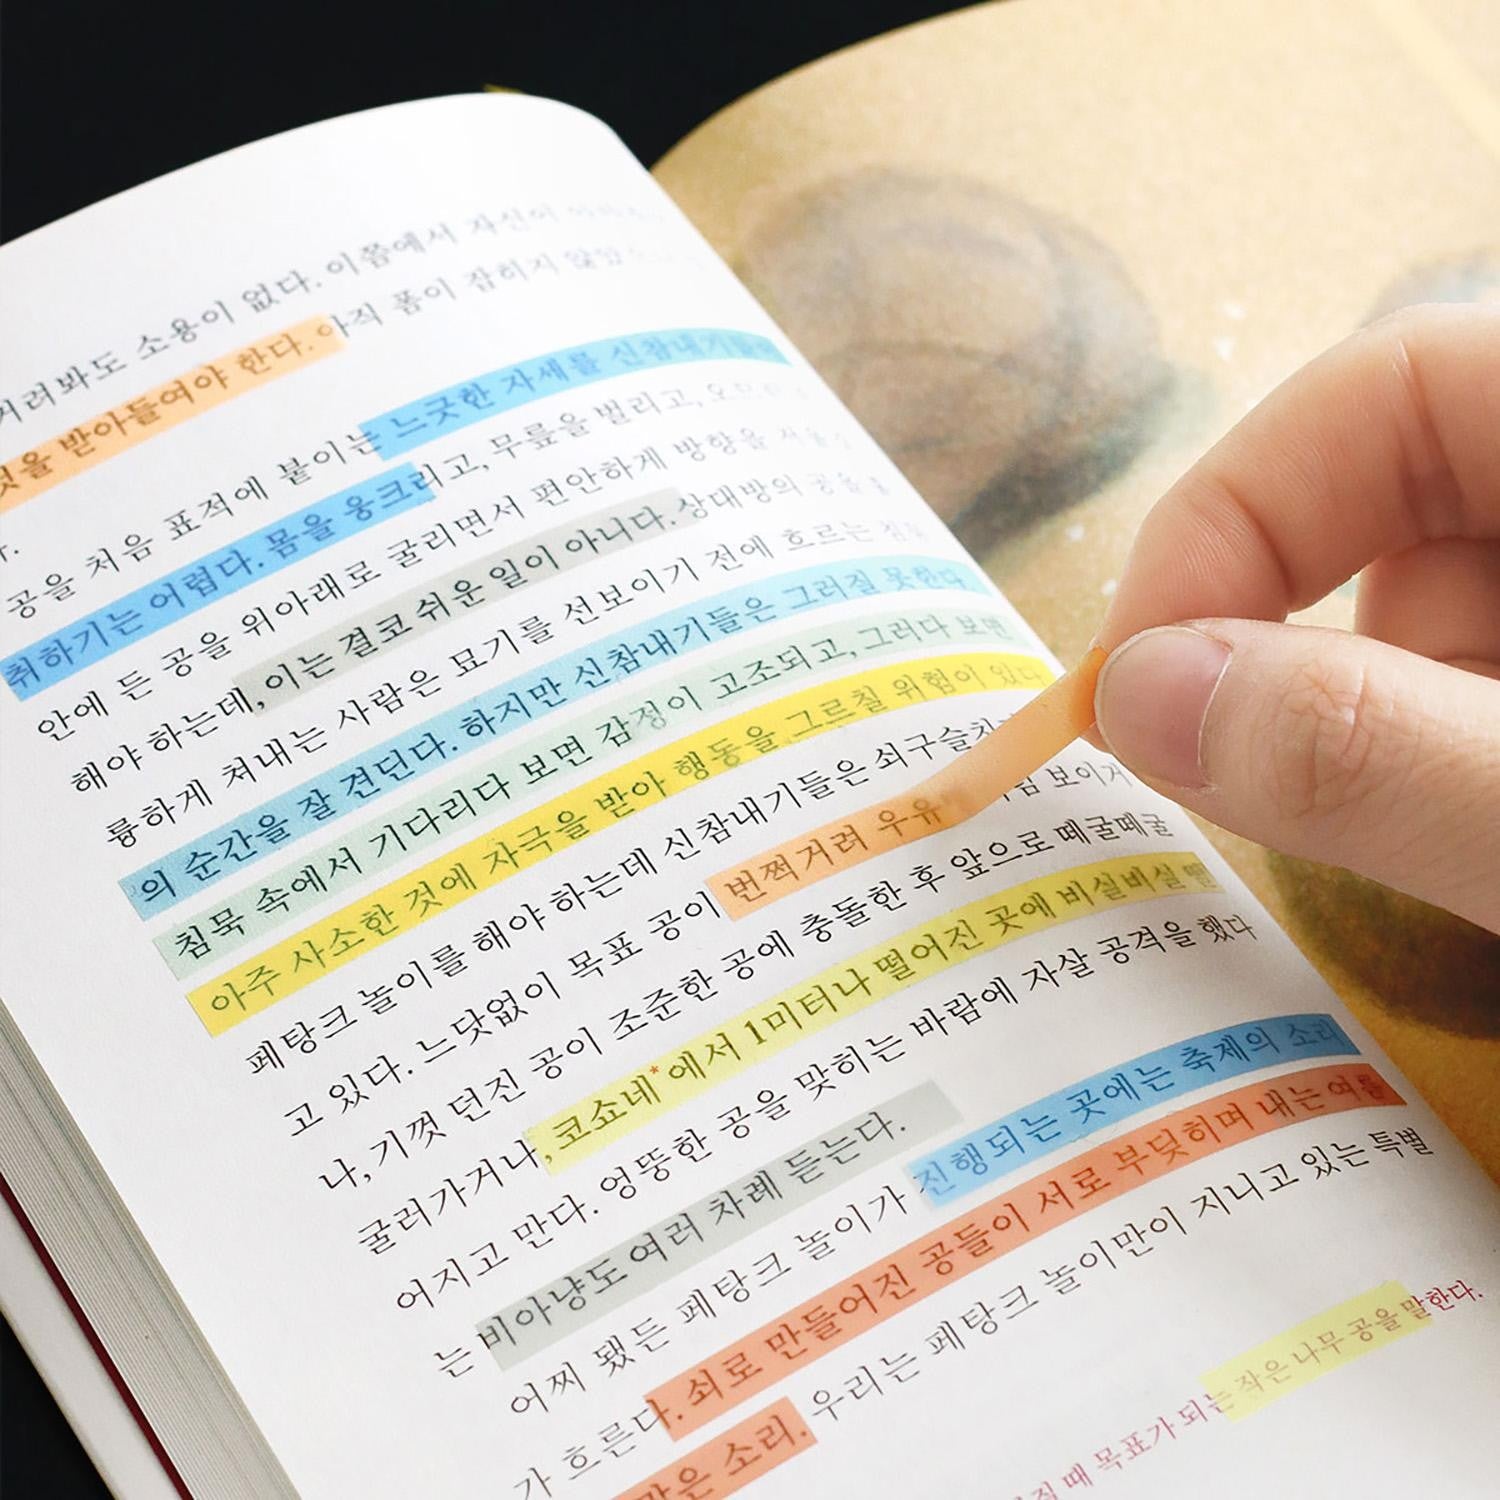 거려봐도 소용이 없다. 이쯤에서 자신이
것을 받아들여야 한다. 아직 폼이 잡히지 않았
다.
공을 처음 표적에 붙이는 느긋한 자세를 신참내기들이
취하기는 어렵다. 몸을 웅크리고, 무릎을 벌리고,
안에 든 공을 위아래로 굴리면서 편안하게 방향을
해야 하는데, 이는 결코 쉬운 일이 아니다. 상대방의 공을
륭하게 쳐내는 사람은 묘기를 선보이기 전에 흐르는
의 순간을 잘 견딘다. 하지만 신참내기들은 그러질 못한다.
침묵 속에서 기다리다 보면 감정이 고조되고, 그러다 보면
아주 사소한 것에 자극을 받아 행동을 그르칠 위험이 있다
페탕크 놀이를 해야 하는데 신참내기들은 쇠구슬치기
고 있다. 느닷없이 목표 공이 번쩍거려 우유 보이거
나, 기껏 던진 공이 조준한 공에 충돌한 후 앞으로 떼굴떼굴
굴러가거나, 코쇼네*에서 1미터나 떨어진 곳에 비실비실 떨
어지고 만다. 엉뚱한 공을 맞히는 바람에 자살 공격을 했다
는 비아냥도 여러 차례 듣는다.
어찌 됐든 페탕크 놀이가 진행되는 곳에는 축제의 소리
가 흐른다. 쇠로 만들어진 공들이 서로 부딪히며 내는 여름
같은 소리. 우리는 페탕크 놀이만이 지니고 있는 특별
질 때 목표가 되는 작은 나무 공을 말한다.